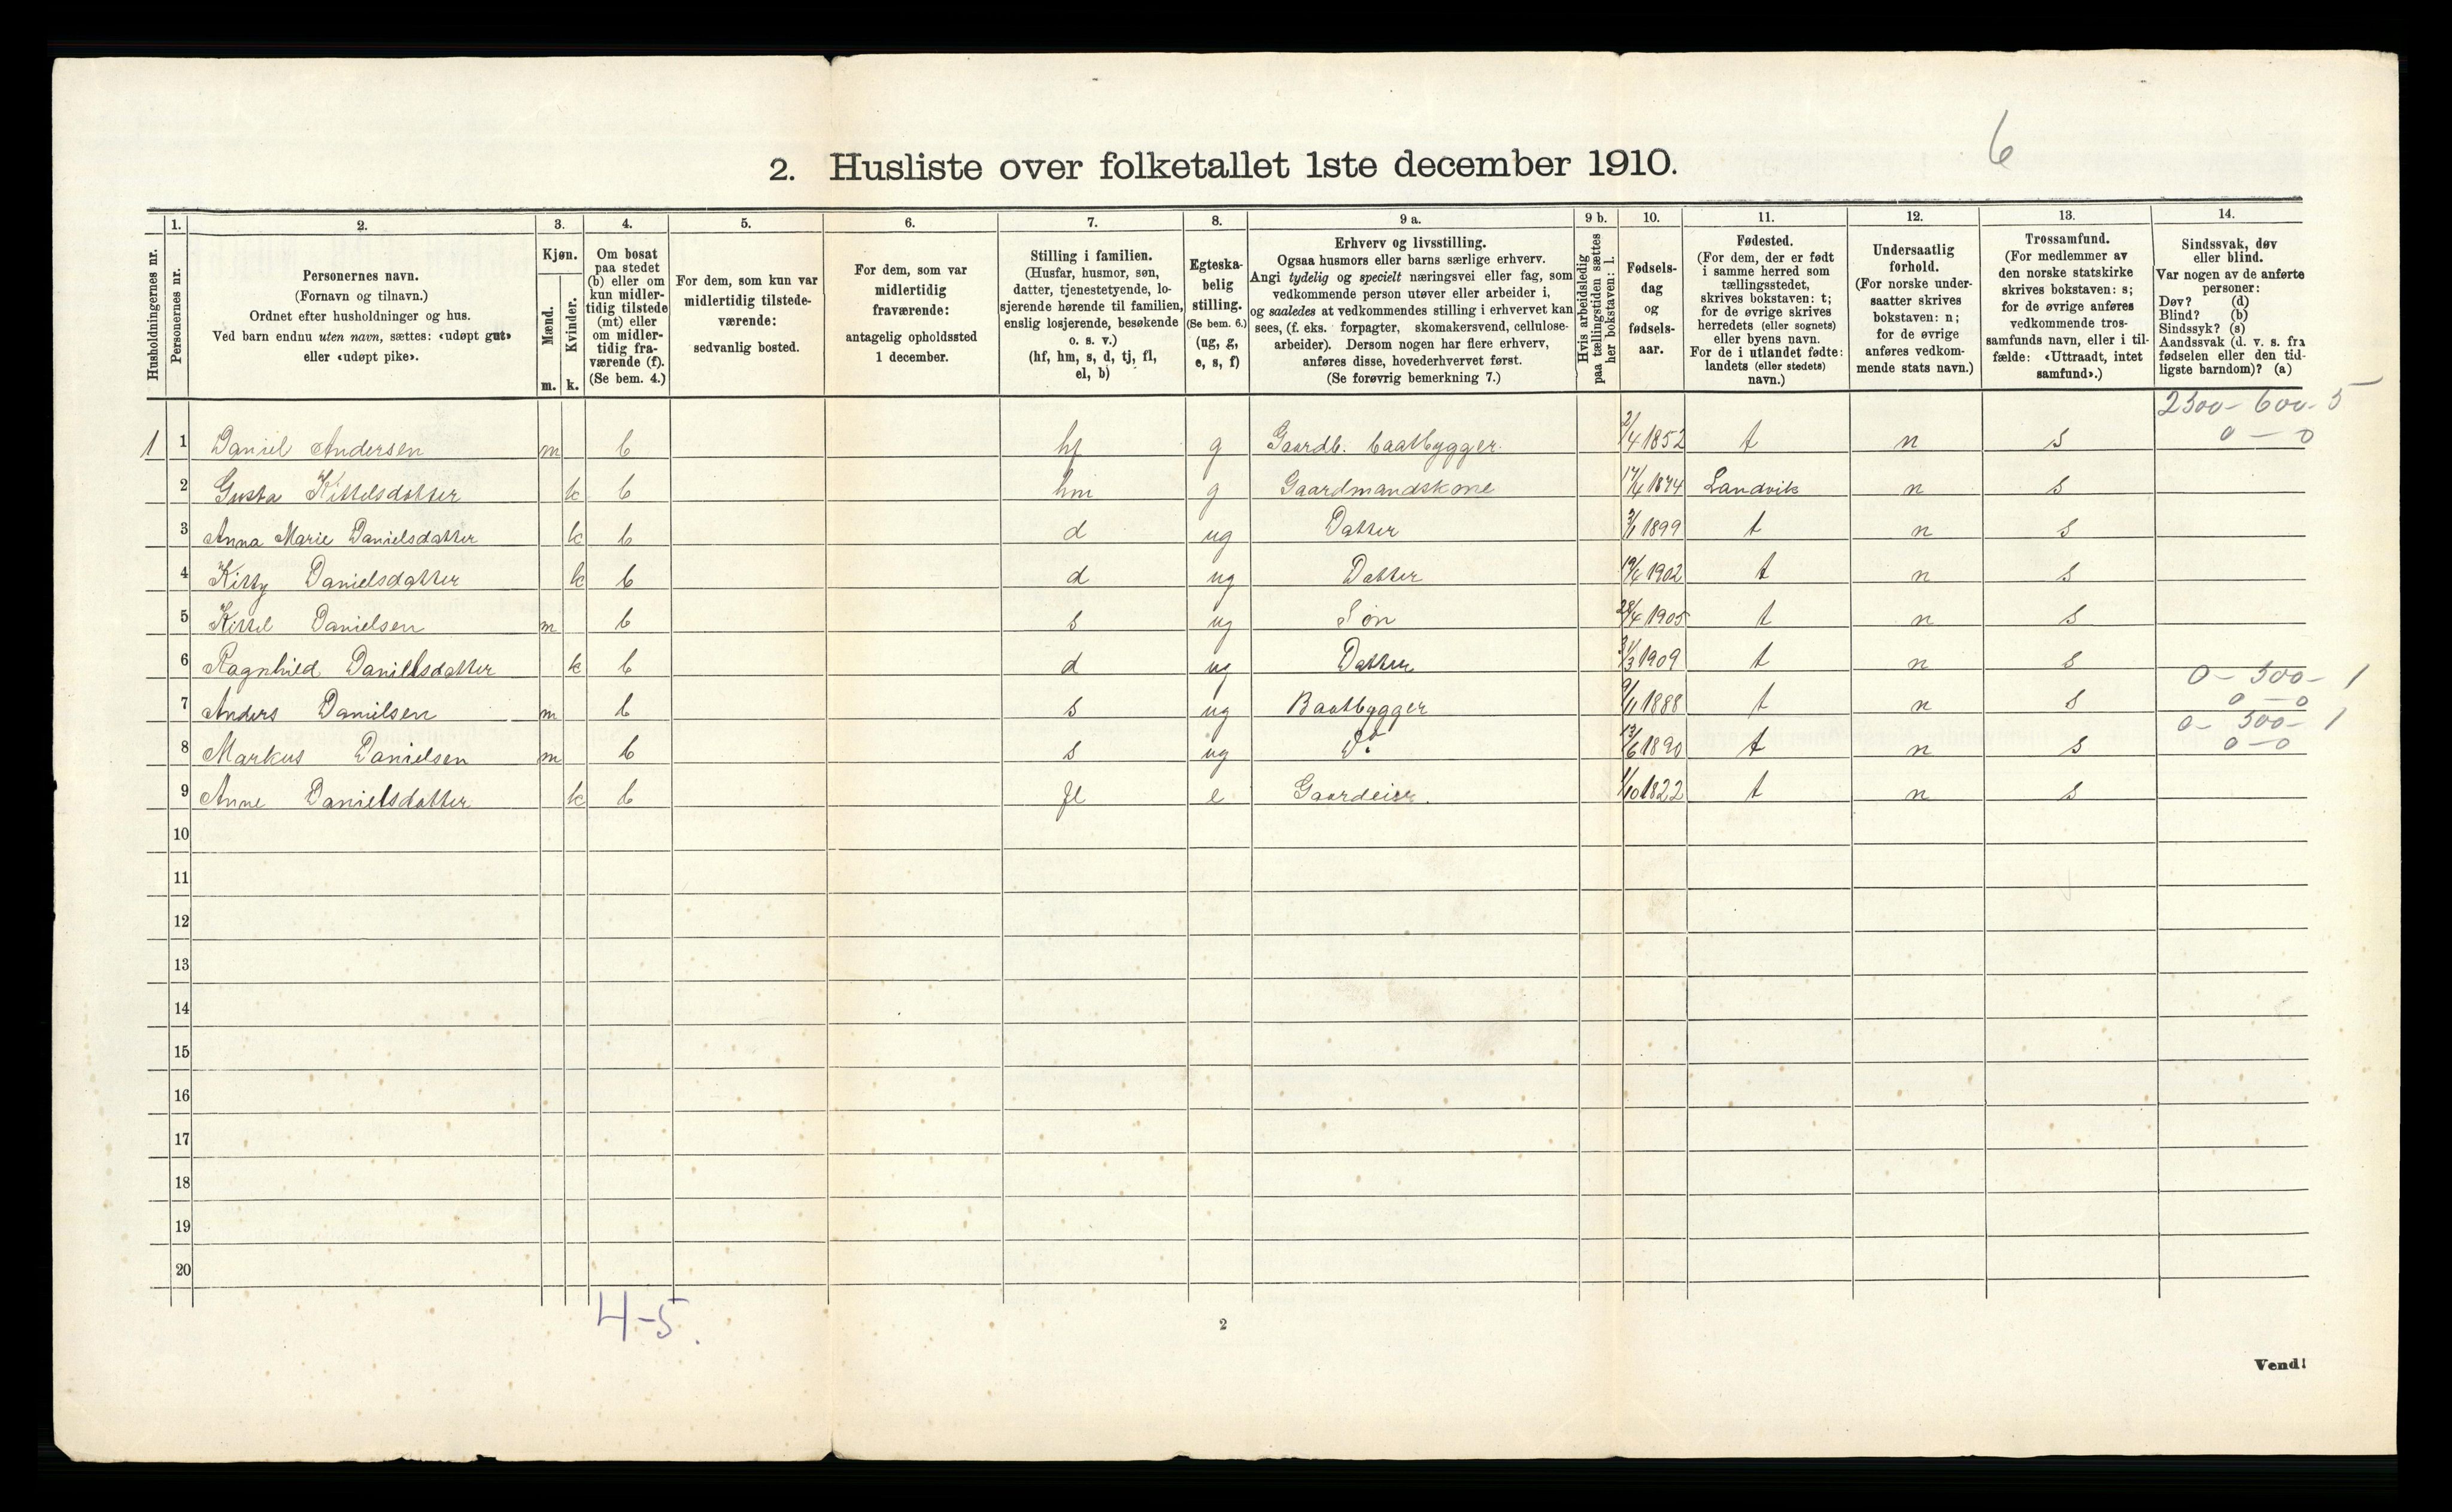 6
2. Husliste over folketallet 1ste december 1910.
Husholdningernes nr.
1.
Personernes nr.
2.
Personernes navn.
(Fornavn og tilnavn.)
Ordnet efter husholdninger og hus.
Ved barn endnu uten navn, sættes: «udøpt gut»
eller «udøpt pike».
3.
Kjøn.
Mænd.
Kvinder.
m. k.
4.
Om bosat
paa stedet
(b) eller om
kun midler-
tidig tilstede
(mt) eller
om midler-
tidig fra-
værende (f).
(Se bem. 4.)
5.
For dem, som kun var
midlertidig tilstede-
værende:
sedvanlig bosted.
6.
For dem, som var
midlertidig
fraværende:
antagelig opholdssted
1 december.
7.
Stilling i familien.
(Husfar, husmor, søn,
datter, tjenestetyende, lo-
sjerende hørende til familien,
enslig losjerende, besøkende
o. s. v.)
(hf, hm, s, d, tj, fl,
el, b)
8.
Egteska-
belig
stilling.
(Se bem. 6.)
(ug, g,
e, s, f)
9 a.
Erhverv og livsstilling.
Ogsaa husmors eller barns særlige erhverv.
Angi tydelig og specielt næringsvei eller fag, som
vedkommende person utøver eller arbeider i,
og saaledes at vedkommendes stilling i erhvervet kan
sees, (f. eks. forpagter, skomakersvend, cellulose-
arbeider). Dersom nogen har flere erhverv,
anføres disse, hovederhvervet først.
(Se forøvrig bemerkning 7.)
9 b.
Hvis arbeidsledig
paa tællingstiden sættes
her bokstaven: l.
10.
Fødsels-
dag
og
fødsels-
aar.
11.
Fødested.
(For dem, der er født
i samme herred som
tællingsstedet,
skrives bokstaven: t;
for de øvrige skrives
herredets (eller sognets)
eller byens navn.
For de i utlandet fødte:
landets (eller stedets)
navn.)
12.
Undersaatlig
forhold.
(For norske under-
saatter skrives
bokstaven: n;
for de øvrige
anføres vedkom-
mende stats navn.)
13.
Trossamfund.
(For medlemmer av
den norske statskirke
skrives bokstaven: s;
for de øvrige anføres
vedkommende tros-
samfunds navn, eller i til-
fælde: «Uttraadt, intet
samfund».)
14.
Sindssvak, døv
eller blind.
Var nogen av de anførte
personer:
Døv? (d)
Blind? (b)
Sindssyk? (s)
Aandssvak (d. v. s. fra
fødselen eller den tid-
ligste barndom)? (a)
2300- 600- 5
1 1 Daniel Andersen m b hf g Gaardb. baatbygger. 2/4 1852 t n s 0 - 0
2 Gusta Kittelsdatter k b hm g Gaardmandskone 17/4 1874 Landvik n s
3 Anna Marie Danielsdatter k b d ug Datter 3/1 1899 t n s
4 Kitty Danielsdatter k b d ug Datter 19/4 1902 t n s
5 Kittel Danielsen m b s ug Søn 28/4 1905 t n s
6 Ragnhild Danielsdatter k b d ug Datter 31/3 1909 t n s
0- 500- 1
7 Anders Danielsen m b s ug Baatbygger 9/1 1888 t n s 0 - 0
0- 500- 1
8 Markus Danielsen m b s ug Do 13/6 1890 t n s 0 - 0
9 Anne Danielsdatter k b fl e Gaardeier. 1/10 1822 t n s
10
11
12
13
14
15
16
17
18
19
20
4-5.
2
Vend!